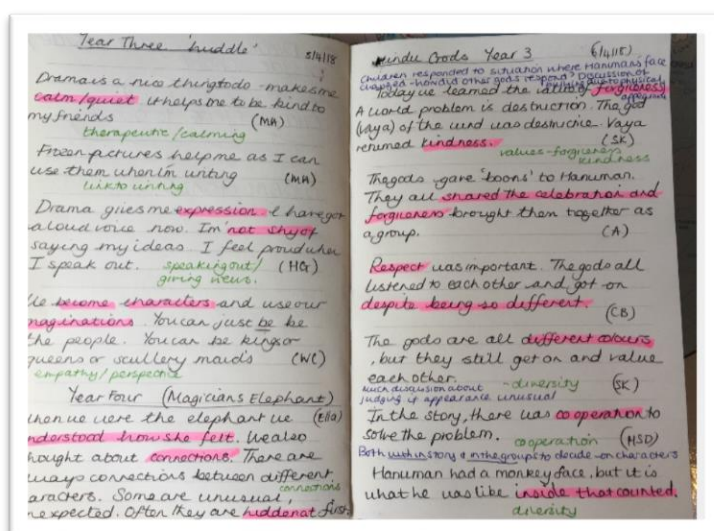 Year Three 'huddle'
5/4/18
Drama is a nice thing to do - makes me
calm/quiet. It helps me to be kind to
my friends (MA)
therapeutic/calming
Frozen pictures help me as I can
use them when I'm writing (MA)
link to writing
Drama gives me expression. I have got
a loud voice now. I'm not shy of
saying my ideas. I feel proud when
I speak out. (HG)
speaking out/
giving views.
We become characters and use our
maginations. You can just be be
the people. You can be kings or
queens or scullery maids (WC)
empathy/perspective
Year Four (Magicians Elephant)
when we were the elephant we (Ella)
nderstood how she felt. We also
hought about connections. There are
ways connections between different
connections
aracters. Some are unusual
nexpected. Often they are hidden at first.
Hindu Gods Year 3 6/4/18)
Children responded to situation where Hanumans face
changed - how did other gods respond? Discussion of
due to physical
appearance
Today we learned the idea of forgiveness
A world problem is destruction. The god
(Vaya) of the wind was destructive. Vaya
returned kindness. (SK)
values - forgiveness
kindness
The gods gave 'boons' to Hanuman.
They all shared the celebration and
forgiveness brought them together as
a group. (A)
Respect was important. The gods all
listened to each other and got on
despite being so different.
(CB)
The gods are all different colours
, but they still get on and value
each other. (SK)
- diversity
much discussion about
judging if appearance unusual
In the story, there was cooperation to
solve the problem. (HSD)
cooperation
Both within story & in the groups to decide on characters
Hanuman had a monkey face, but it is
what he was like inside that counted.
diversity